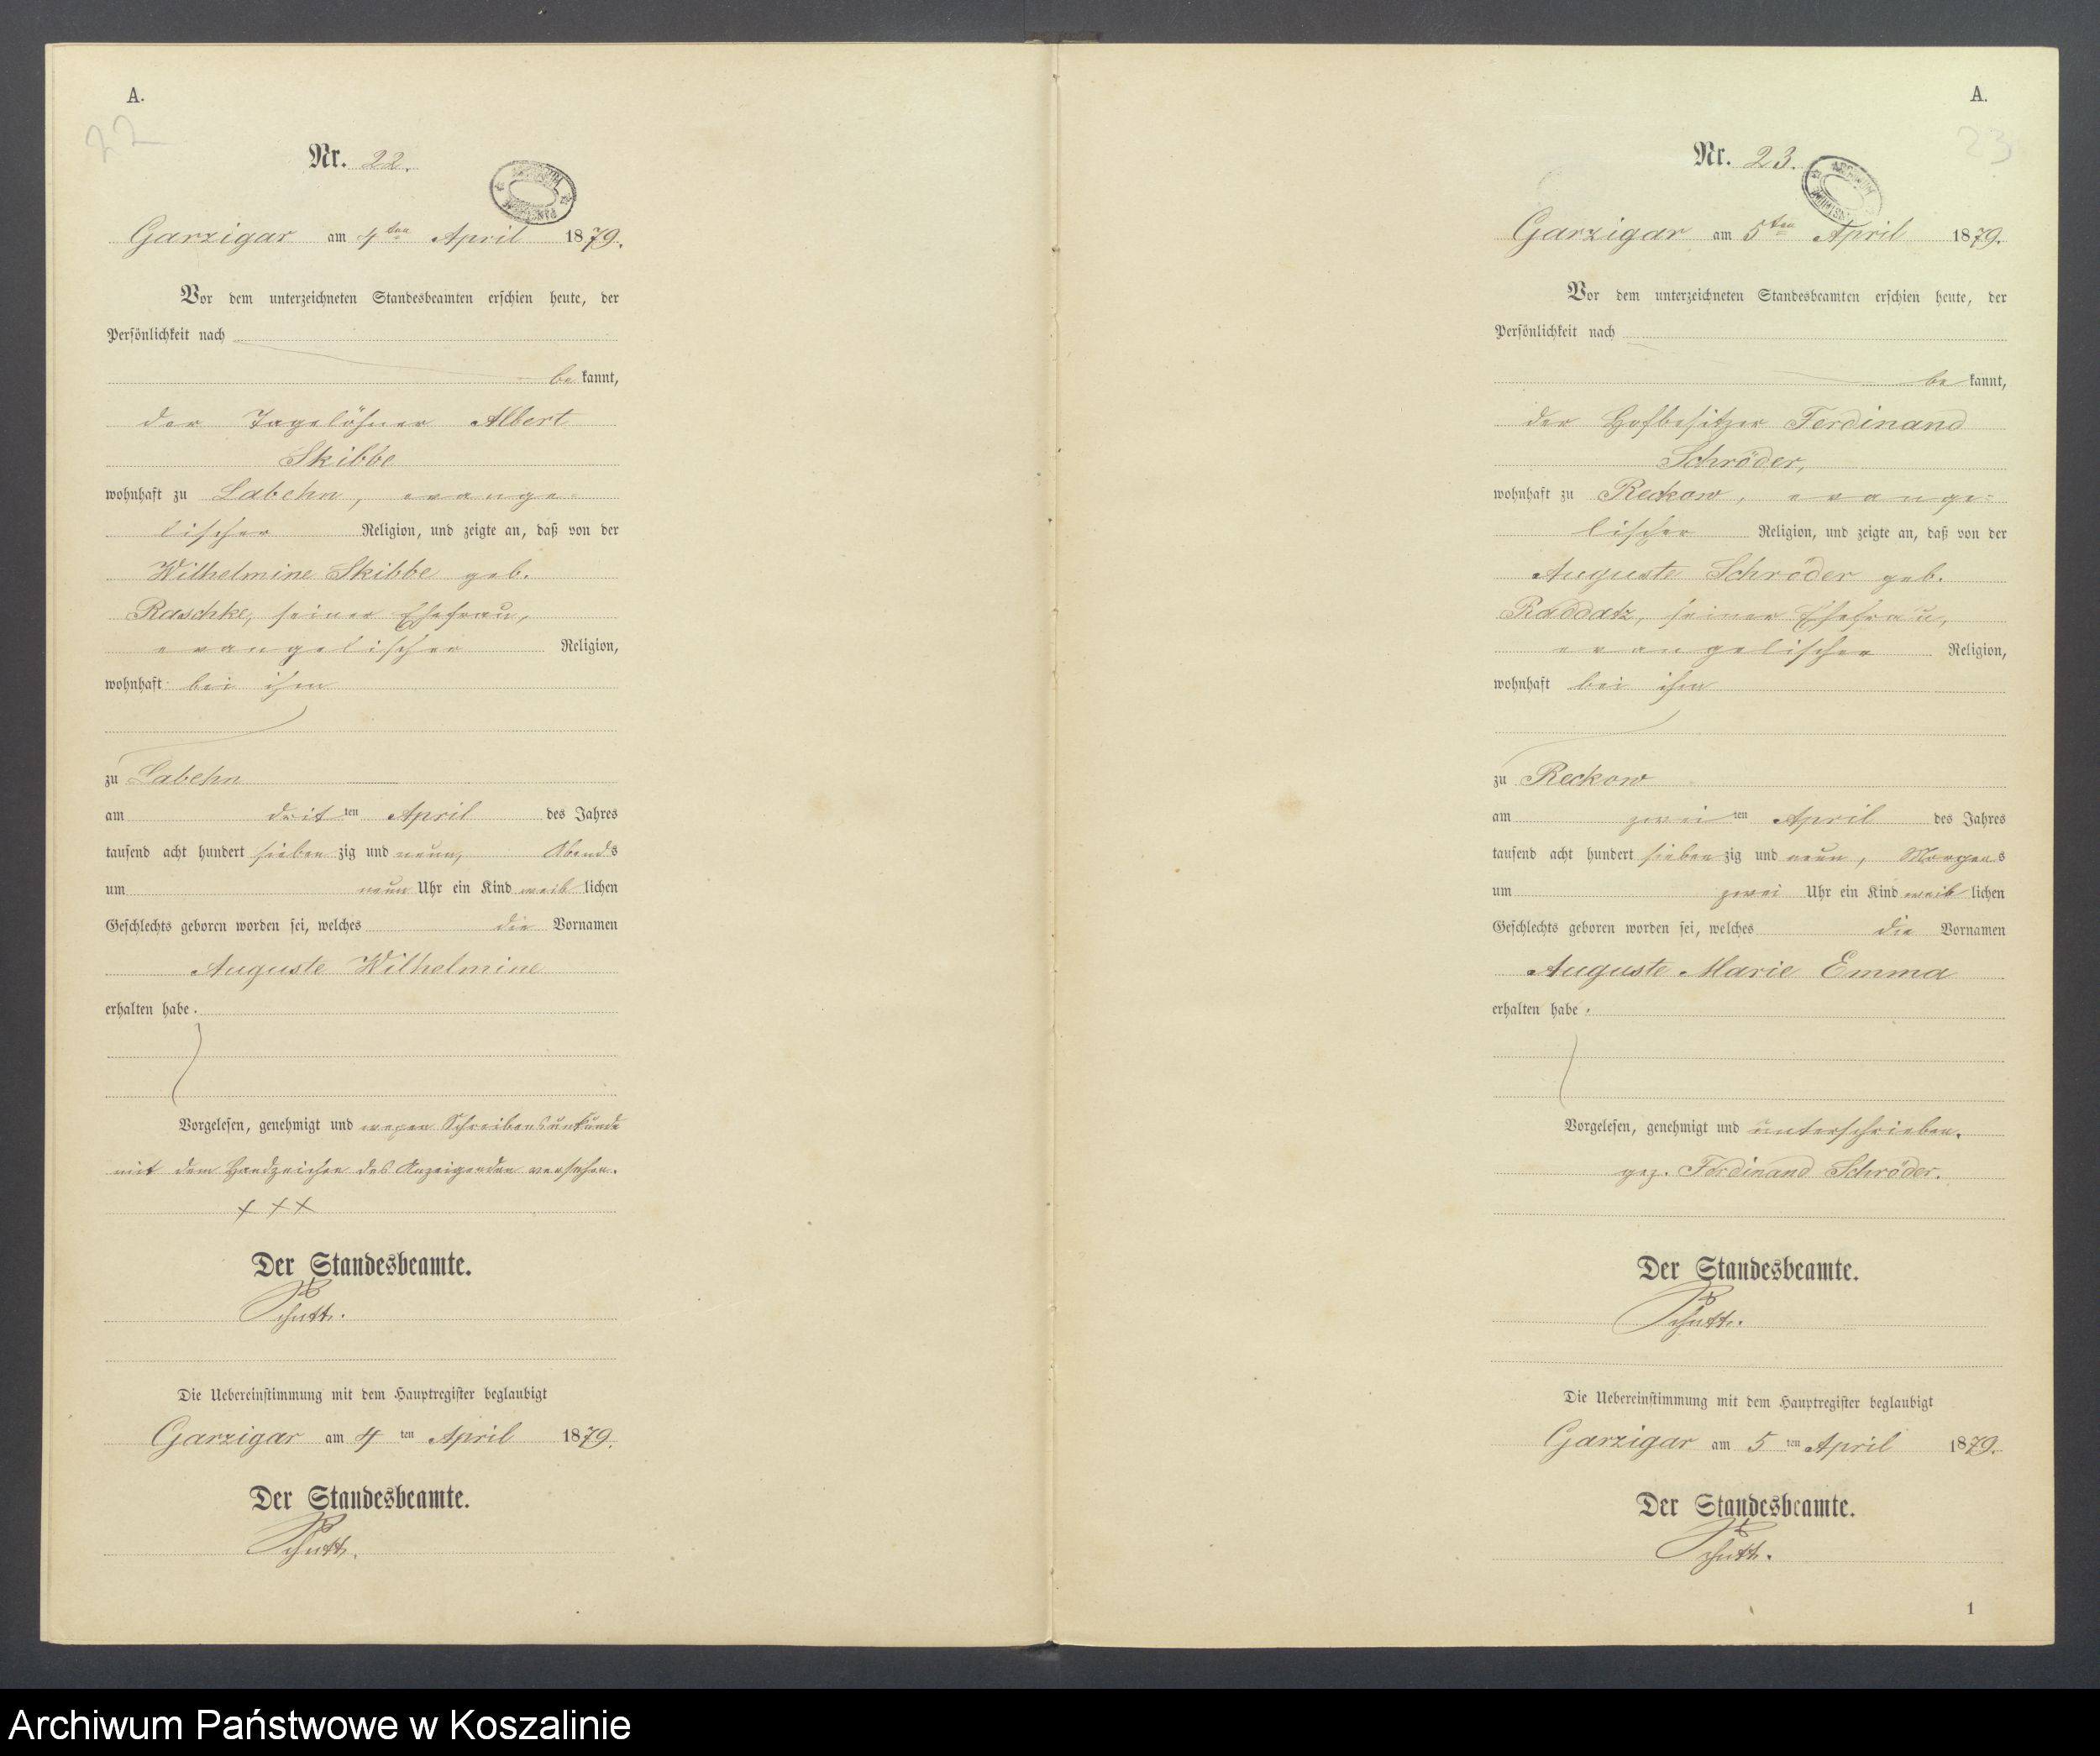 A.
22
Nr. 22.
Garzigar am 4ten April 1879.
Vor dem unterzeichneten Standesbeamten erschien heute, der
Persönlichkeit nach
bekannt,
der Tagelöhner Albert
Skibbe
wohnhaft zu Labehn, evange-
lischer Religion, und zeigte an, daß von der
Wilhelmine Skibbe geb.
Raschke, seiner Ehefrau,
evangelischer Religion,
wohnhaft bei ihm
zu Labehn
am dritten April des Jahres
tausend acht hundert siebenzig und neun, Abends
um neun Uhr ein Kind weiblichen
Geschlechts geboren worden sei, welches die Vornamen
Auguste Wilhelmine
erhalten habe.
Vorgelesen, genehmigt und wegen Schreibensunkunde
mit dem Handzeichen des Anzeigenden versehen.
+ + +
Der Standesbeamte.
Die Uebereinstimmung mit dem Hauptregister beglaubigt
Garzigar am 4ten April 1879.
Der Standesbeamte.
A.
23
Nr. 23.
ARCHIWUM
Garzigar am 5ten April 1879.
Vor dem unterzeichneten Standesbeamten erschien heute, der
Persönlichkeit nach
bekannt,
der Hofbesitzer Ferdinand
Schröder,
wohnhaft zu Reckow, evange-
lischer Religion, und zeigte an, daß von der
Auguste Schröder geb.
Raddatz, seiner Ehefrau,
evangelischer Religion,
wohnhaft bei ihm
zu Reckow
am zweiten April des Jahres
tausend acht hundert siebenzig und neun, Morgens
um zwei Uhr ein Kind weiblichen
Geschlechts geboren worden sei, welches die Vornamen
Auguste Marie Emma
erhalten habe.
Vorgelesen, genehmigt und unterschrieben.
gez. Ferdinand Schröder.
Der Standesbeamte.
Die Uebereinstimmung mit dem Hauptregister beglaubigt
Garzigar am 5ten April 1879.
Der Standesbeamte.
1
Archiwum Państwowe w Koszalinie